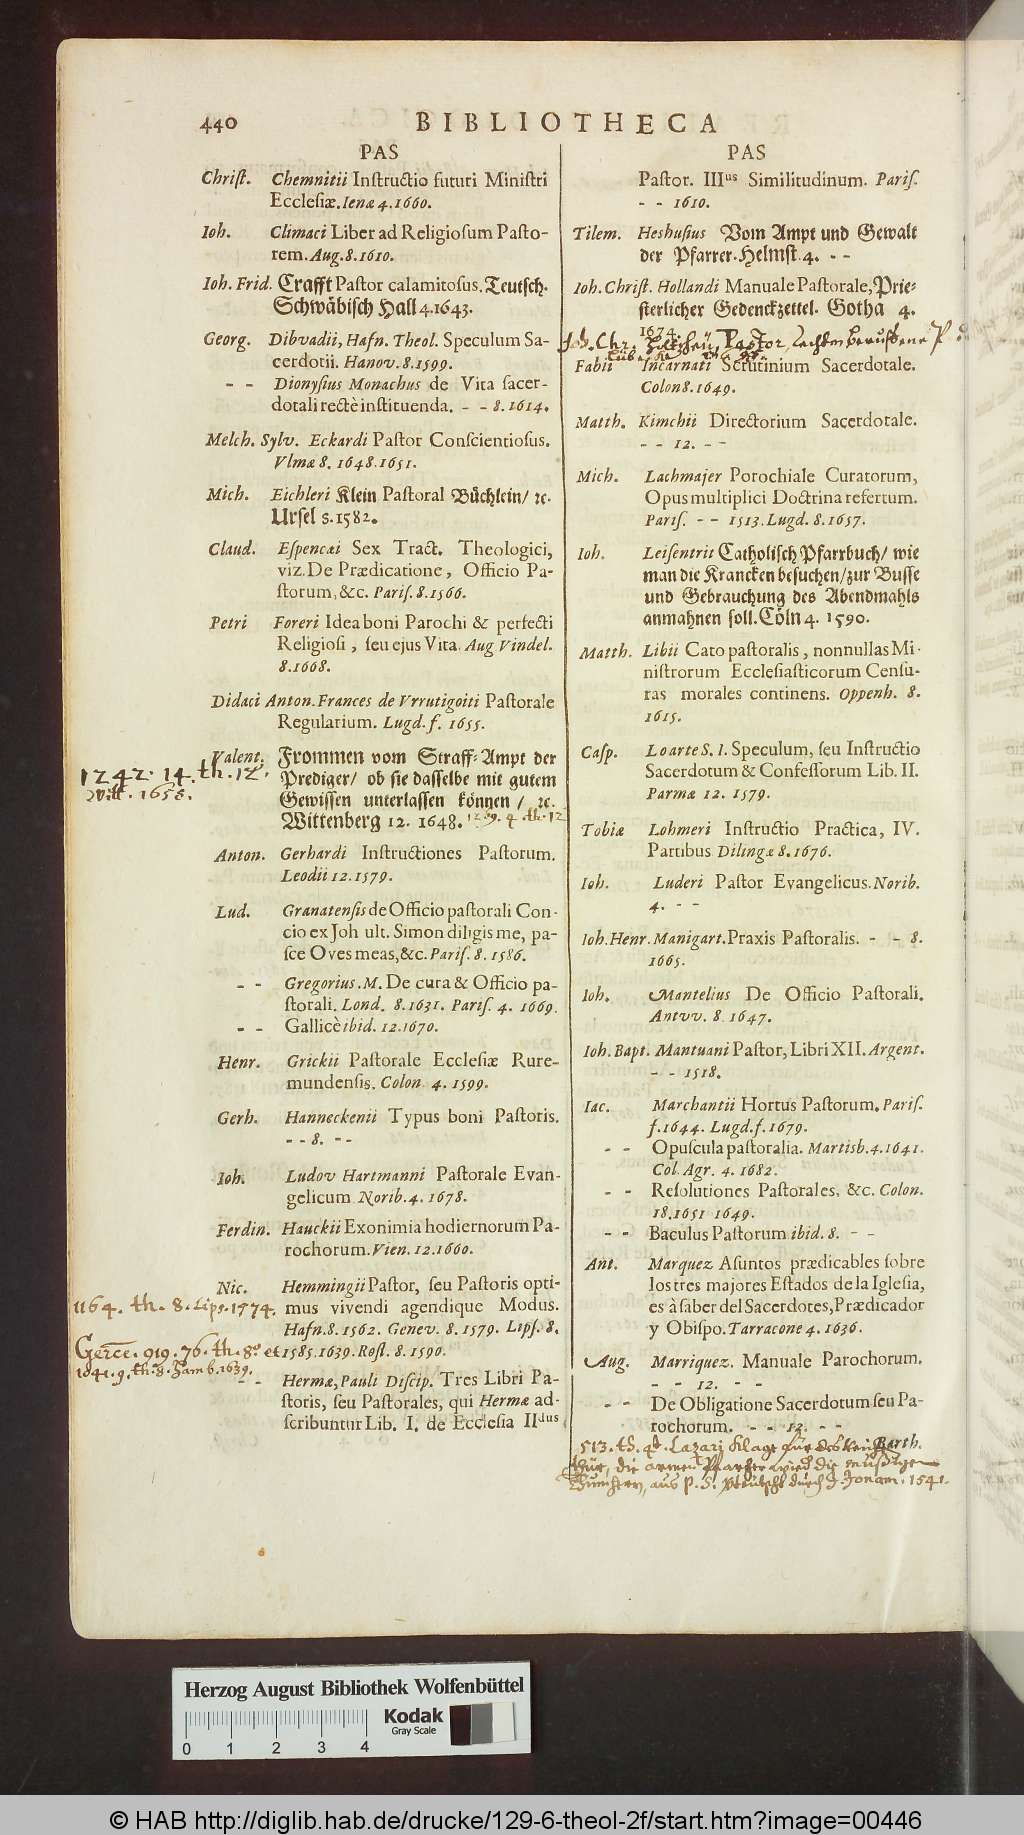 440 BIBLIOTHECA
PAS
Christ. Chemnitii Instructio futuri Ministri
Ecclesiæ. Ienæ 4. 1660.
Ioh. Climaci Liber ad Religiosum Pasto-
rem. Aug. 8. 1610.
Ioh. Frid. Crafft Pastor calamitosus. Teutsch.
Schwäbisch Hall 4. 1643.
Georg. Dibvadii, Hafn. Theol. Speculum Sa-
cerdotii. Hanov. 8. 1599.
- - Dionysius Monachus de Vita sacer-
dotali rectè instituenda. - - 8. 1614.
Melch. Sylv. Eckardi Pastor Conscientiosus.
Vlmæ 8. 1648. 1651.
Mich. Eichleri Klein Pastoral Büchlein/ ꝛc.
Ursel 8. 1582.
Claud. Espencæi Sex Tract. Theologici,
viz. De Prædicatione, Officio Pa-
storum, &c. Paris. 8. 1566.
Petri Foreri Idea boni Parochi & perfecti
Religiosi, seu ejus Vita. Aug Vindel.
8. 1668.
Didaci Anton. Frances de Vrrutigoiti Pastorale
Regularium. Lugd. f. 1655.
Valent. Frommen vom Straff-Ampt der
1242. 14. th. 12.
Prediger/ ob sie dasselbe mit gutem
Witt. 1658.
Gewissen unterlassen können/ ꝛc.
Wittenberg 12. 1648. 1219. 4. th. 12
Anton. Gerhardi Instructiones Pastorum.
Leodii 12. 1579.
Lud. Granatensis de Officio pastorali Con-
cio ex Joh ult. Simon diligis me, pa-
sce Oves meas, &c. Paris. 8. 1586.
- - Gregorius. M. De cura & Officio pa-
storali. Lond. 8. 1631. Paris. 4. 1669.
- - Gallicè ibid. 12. 1670.
Henr. Grickii Pastorale Ecclesiæ Rure-
mundensis. Colon 4. 1599.
Gerh. Hanneckenii Typus boni Pastoris.
- - 8. - -
Ioh. Ludov Hartmanni Pastorale Evan-
gelicum Norib. 4. 1678.
Ferdin. Hauckii Exonimia hodiernorum Pa-
rochorum. Vien. 12. 1660.
Nic. Hemmingii Pastor, seu Pastoris opti-
1164. th. 8. Lips. 1774.
mus vivendi agendique Modus.
Hafn. 8. 1562. Genev. 8. 1579. Lips. 8.
919. 76. th. 8o et
1585. 1639. Rost. 8. 1590.
1041. 9. th. 8. Hamb. 1639.
- - Hermæ, Pauli Discip. Tres Libri Pa-
storis, seu Pastorales, qui Hermæ ad-
scribuntur Lib. I. de Ecclesia IIdus
PAS
Pastor. IIIus Similitudinum. Paris.
- - 1610.
Tilem. Heshusius Vom Ampt und Gewalt
der Pfarrer. Helmst. 4. - -
Ioh. Christ. Hollandi Manuale Pastorale, Prie-
sterlicher Gedenckzettel. Gotha 4.
1674.
Joh. Chr. Pastor
Fabii Incarnati Scrutinium Sacerdotale.
Colon 8. 1649.
Matth. Kimchii Directorium Sacerdotale.
- - 12. - -
Mich. Lachmajer Porochiale Curatorum,
Opus multiplici Doctrina refertum.
Paris. - - 1513. Lugd. 8. 1657.
Ioh. Leisentrit Catholisch Pfarrbuch/ wie
man die Krancken besuchen/ zur Busse
und Gebrauchung des Abendmahls
anmahnen soll. Cöln 4. 1590.
Matth. Libii Cato pastoralis, nonnullas Mi-
nistrorum Ecclesiasticorum Censu-
ras morales continens. Oppenh. 8.
1615.
Casp. Loarte S. I. Speculum, seu Instructio
Sacerdotum & Confessorum Lib. II.
Parmæ 12. 1579.
Tobiæ Lohmeri Instructio Practica, IV.
Partibus Dilingæ 8. 1676.
Ioh. Luderi Pastor Evangelicus. Norib.
4. - -
Ioh. Henr. Manigart. Praxis Pastoralis. - - 8.
1665.
Ioh. Mantelius De Officio Pastorali.
Antvv. 8. 1647.
Ioh. Bapt. Mantuani Pastor, Libri XII. Argent.
- - 1518.
Iac. Marchantii Hortus Pastorum. Paris.
f. 1644. Lugd. f. 1679.
- - Opuscula pastoralia. Martisb. 4. 1641.
Col. Agr. 4. 1682.
- - Resolutiones Pastorales, &c. Colon.
18. 1651 1649.
- - Baculus Pastorum ibid. 8. - -
Ant. Marquez Asuntos prædicables sobre
los tres majores Estados de la Iglesia,
es â saber del Sacerdotes, Prædicador
y Obispo. Tarracone 4. 1636.
Aug. Marriquez. Manuale Parochorum.
- - 12. - -
- - De Obligatione Sacerdotum seu Pa-
rochorum. - - 12. - -
Barth.
513. th. 4o. Lazari Klage für des
thür, die armen Pfarher
aus P. S. durch J. Jonam. 1541.
Herzog August Bibliothek Wolfenbüttel
Kodak
Gray Scale
0 1 2 3 4
© HAB http://diglib.hab.de/drucke/129-6-theol-2f/start.htm?image=00446